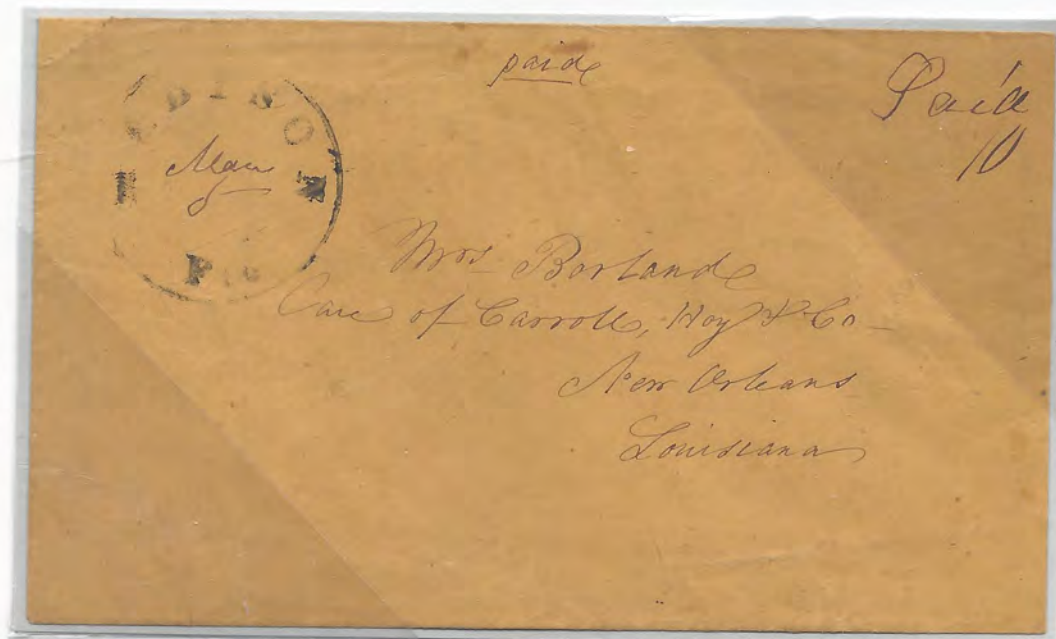 paid
Paid
10
MADISON
May
8
F
Mrs Borland
Care of Carroll, Hoy & Co
New Orleans
Louisiana